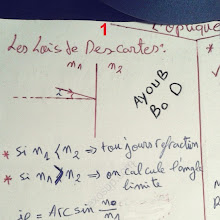 1
l'optique
Les Lois de Descartes:
n1 n2
AYOUB
BoD
* si n1 < n2 => toujours refraction
* si n1 > n2 => on calcule l'angle
limite
ie = Arcsin n2/n1